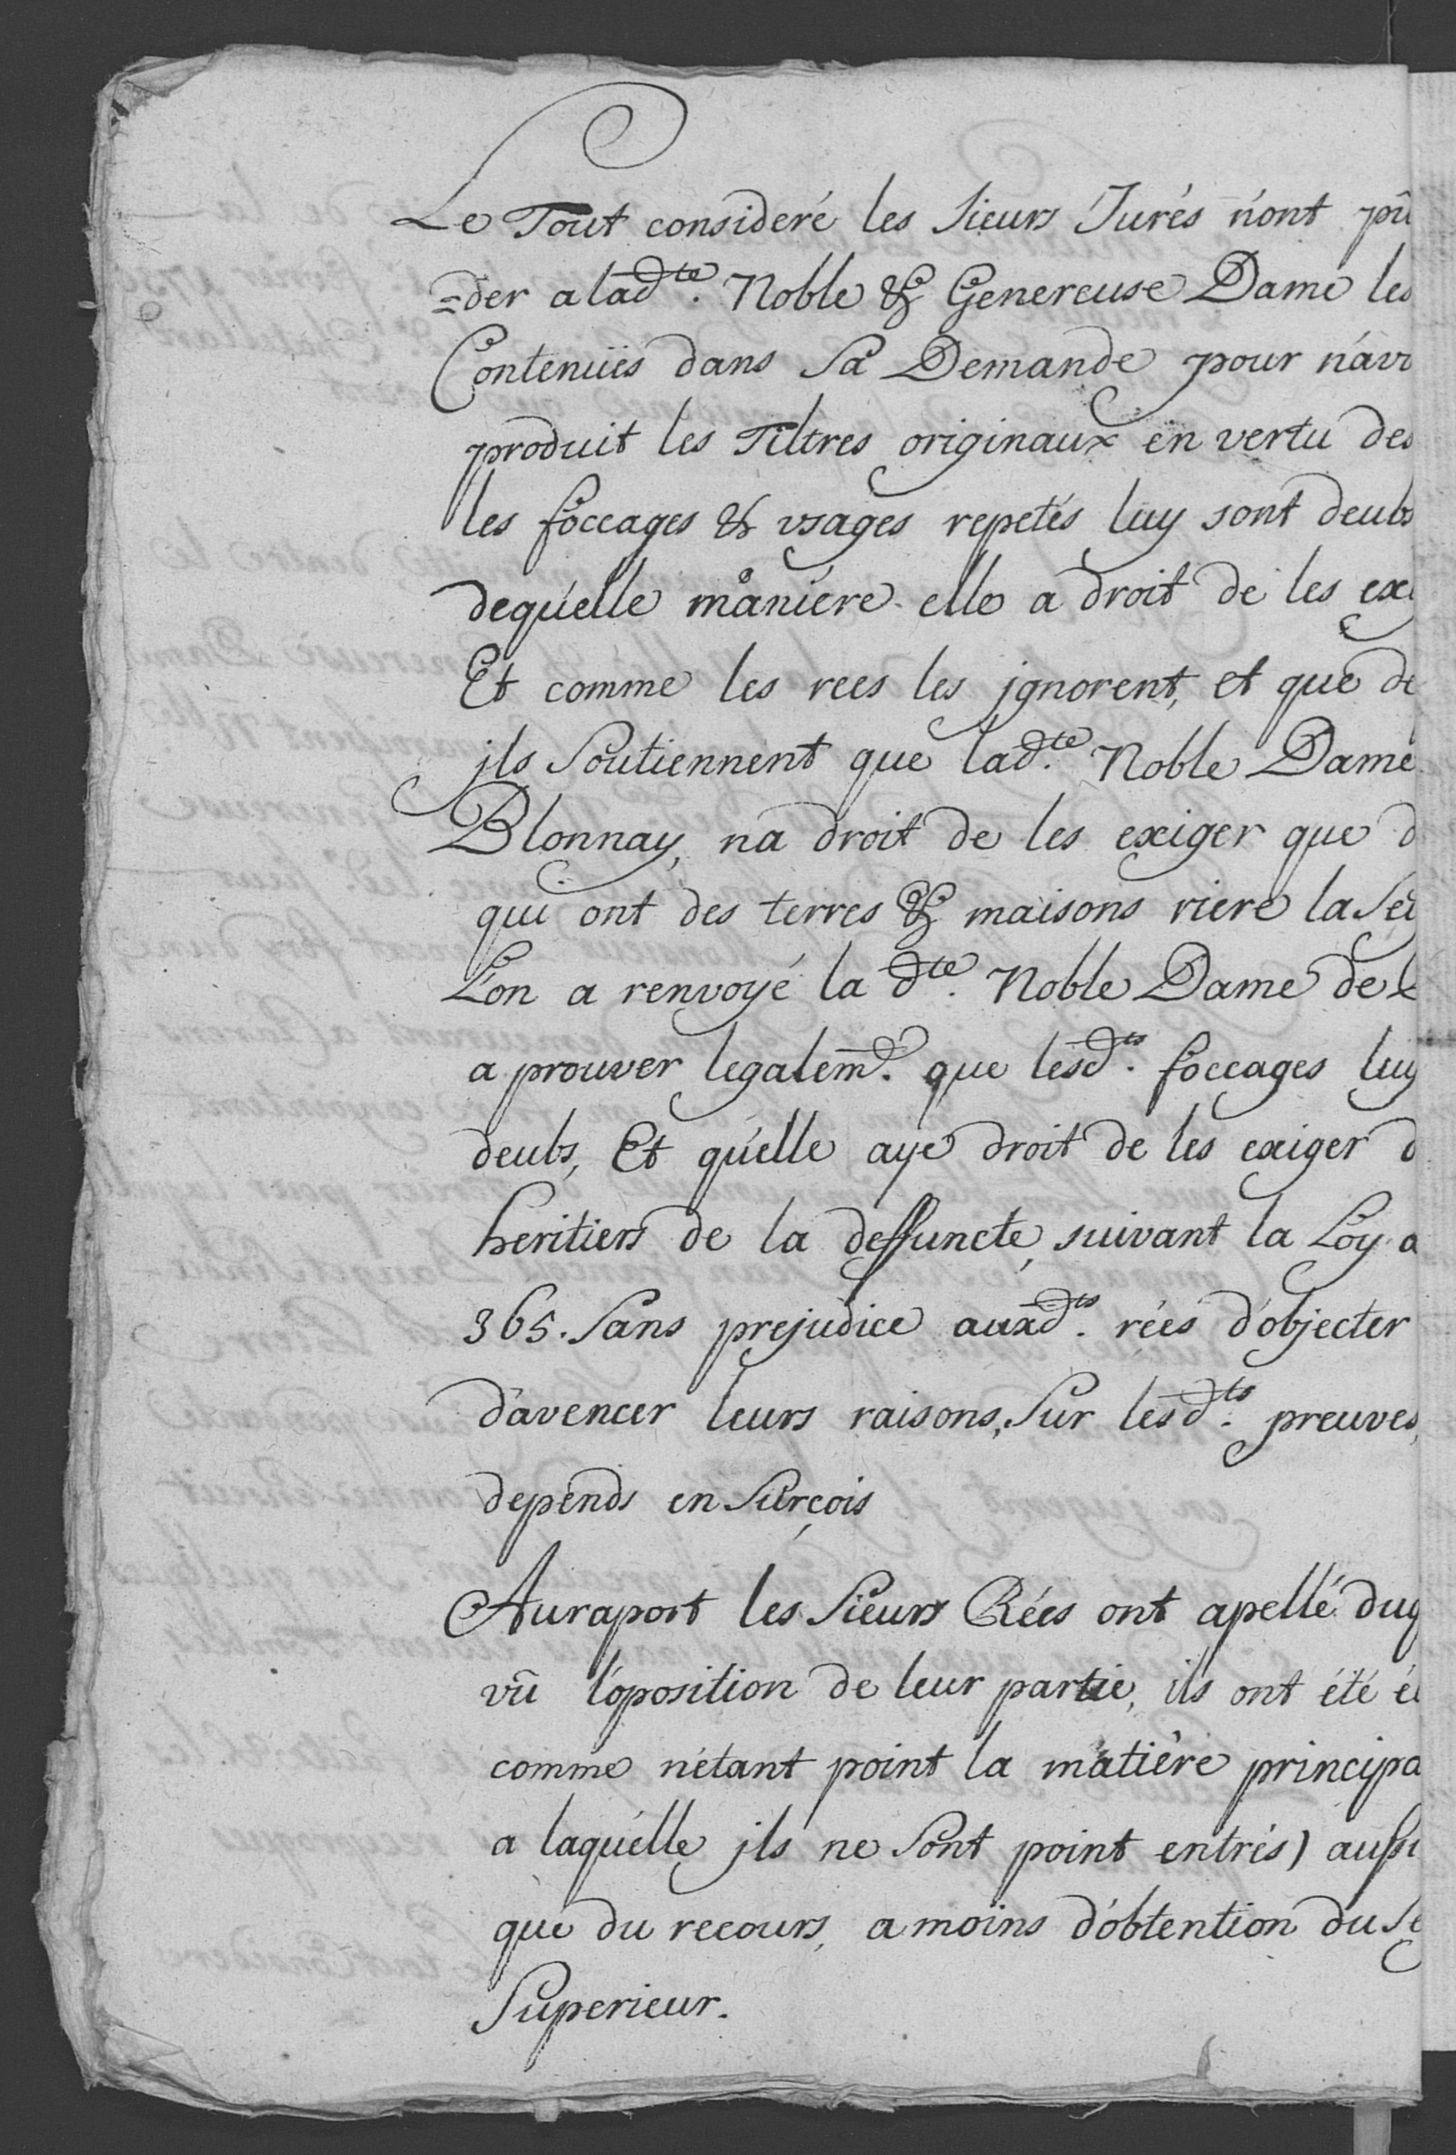 Le Tout consideré les Sieurs Jurés n'ont pû
=der a lad.te Noble & Genereuse Dame les
Contenües dans Sa Demande pour n'av
produit les Tiltres originaux en vertu des
les foccages & usages repetés luy sont deubs
dequ'elle maniere elle a droit de les ex
Et comme les rees les jgnorent, et que de
jls Soutiennent que lad.te Noble Dame
Blonnay, na droit de les exiger que d
qui ont des terres & maisons riere la Sei
L'on a renvoyé la d.te Noble Dame de
a prouver legalem.t que lesd.ts foccages luy
deubs, Et qu'elle aye droit de les exiger d
heritiers de la deffuncte, suivant la Loy a
365. Sans prejudice auxd.ts rées d'objecter
d'avencer leurs raisons, Sur lesd.ts preuves,
depends en Surçois
Auraport les Sieurs Rées ont apellé duq
vû l'oposition de leur partie, ils ont été é
comme n'etant point la matière principa
a laqu'elle jls ne Sont point entrés) aussi
que du recours, a moins d'obtention du Se
Superieur.